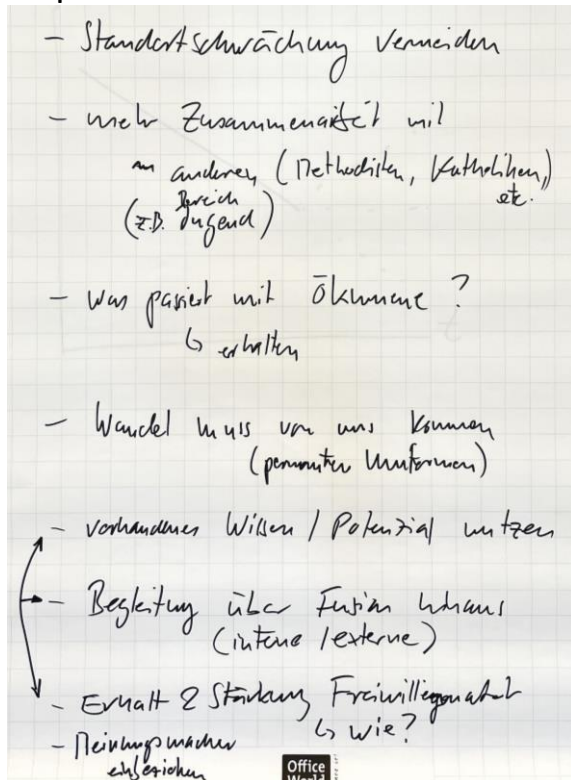 - Standortschwächung vermeiden
- mehr Zusammenarbeit mit
anderen (Methodisten, Katholiken,
etc.
(z.B. Bereich
Jugend)
- Was passiert mit Ökumene?
↳ erhalten
- Wandel muss von uns kommen
(permanentes Umformen)
- vorhandenes Wissen / Potenzial nutzen
- Begleitung über Fusion hinaus
(interne / externe)
- Erhalt & Stärkung Freiwilligenarbeit
↳ wie?
- Meinungsmacher
einbeziehen
Office
World